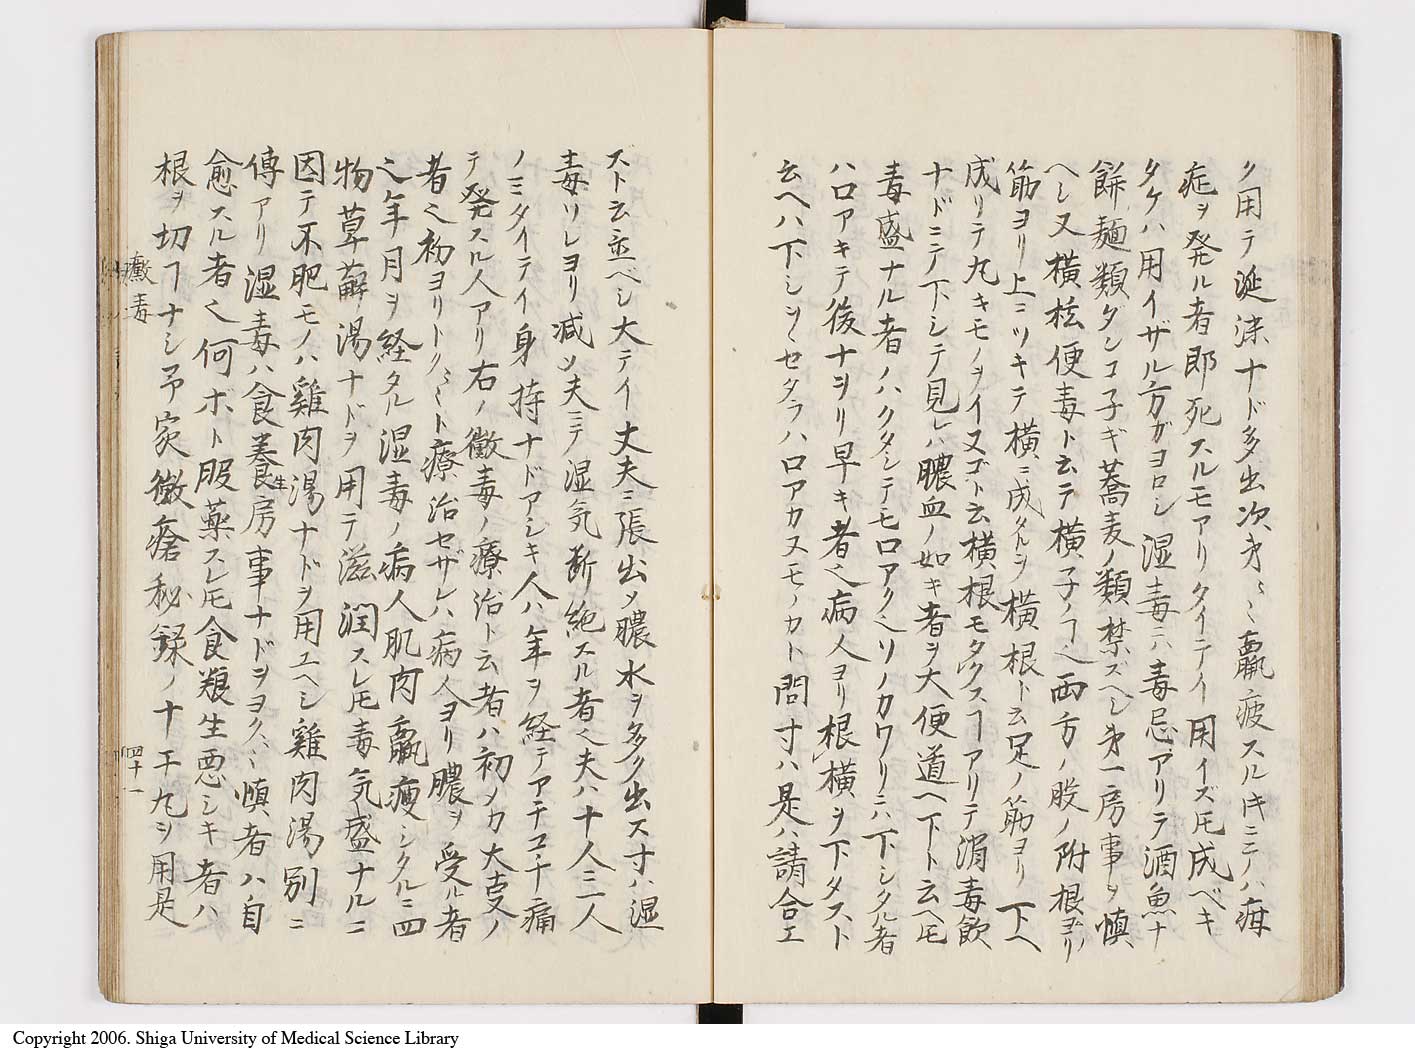 ク用テ涎沫ナド多出次第〻〻羸疲スルキミノハ痗
症ヲ発ル者即死スルモアリタイテイ用イズ𪜈成ベキ
タケハ用イザル方ガヨロシ湿毒ニハ毒忌アリテ酒魚ナ
餅麺類ダンコ子ギ蕎麦ノ類禁ズヘシ第一房事ヲ慎
ヘシ又横痃便毒ト云テ横子ノヿ也両方ノ股ノ附根ヨリ
筋ヨリ上ニツキテ横ニ成タルヲ横根ト云足ノ筋ヨリ下ヘ
成リテ丸キモノヲイヌゴト云横根モタクスヿアリテ消毒飲
ナドニテ下シテ見レハ膿血ノ如キ者ヲ大便道ヘ下ト云ヘ𪜈
毒盛ナル者ノハクダシテモ口アク也ソノカワリニハ下シタル者
ハ口アキテ後ナヲリ早キ者也病人ヨリ根横ヲ下タスト
云ヘハ下シシ セタラハ口アカヌモノカト問寸ハ是ハ請合エ
ズト云並ベシ大テイ丈夫ニ張出メ膿水ヲ多ク出ス寸ハ湿
毒ソレヨリ減ソ夫ニテ湿気断絶スル者也夫ハ十人ニ一人
ノミタイテイ身持ナドアシキ人ハ年ヲ経テアチコチ痛
テ発スル人アリ右ノ黴毒ノ療治ト云者ハ初メカ大叓ノ
者也初ヨリトク〻〻ト療治セザレハ病人ヨリ膿ヲ受ル者
也年月ヲ経タル湿毒ノ病人肌肉羸痩シタルニ四
物草薢湯ナドヲ用テ滋潤スレ𪜈毒気盛ナルニ
因テ不肥モノハ雞肉湯ナドヲ用ユヘシ雞肉湯別ニ
傳アリ湿毒ハ食養生房事ナドヲヨク〻〻慎者ハ自
愈スル者也何ボト服薬スレ𪜈食粮生悪シキ者ハ
根ヲ切ヿナシ予家黴瘡秘録ノ十干丸ヲ用是
黴毒
四十一
Copyright 2006. Shiga University of Medical Science Library